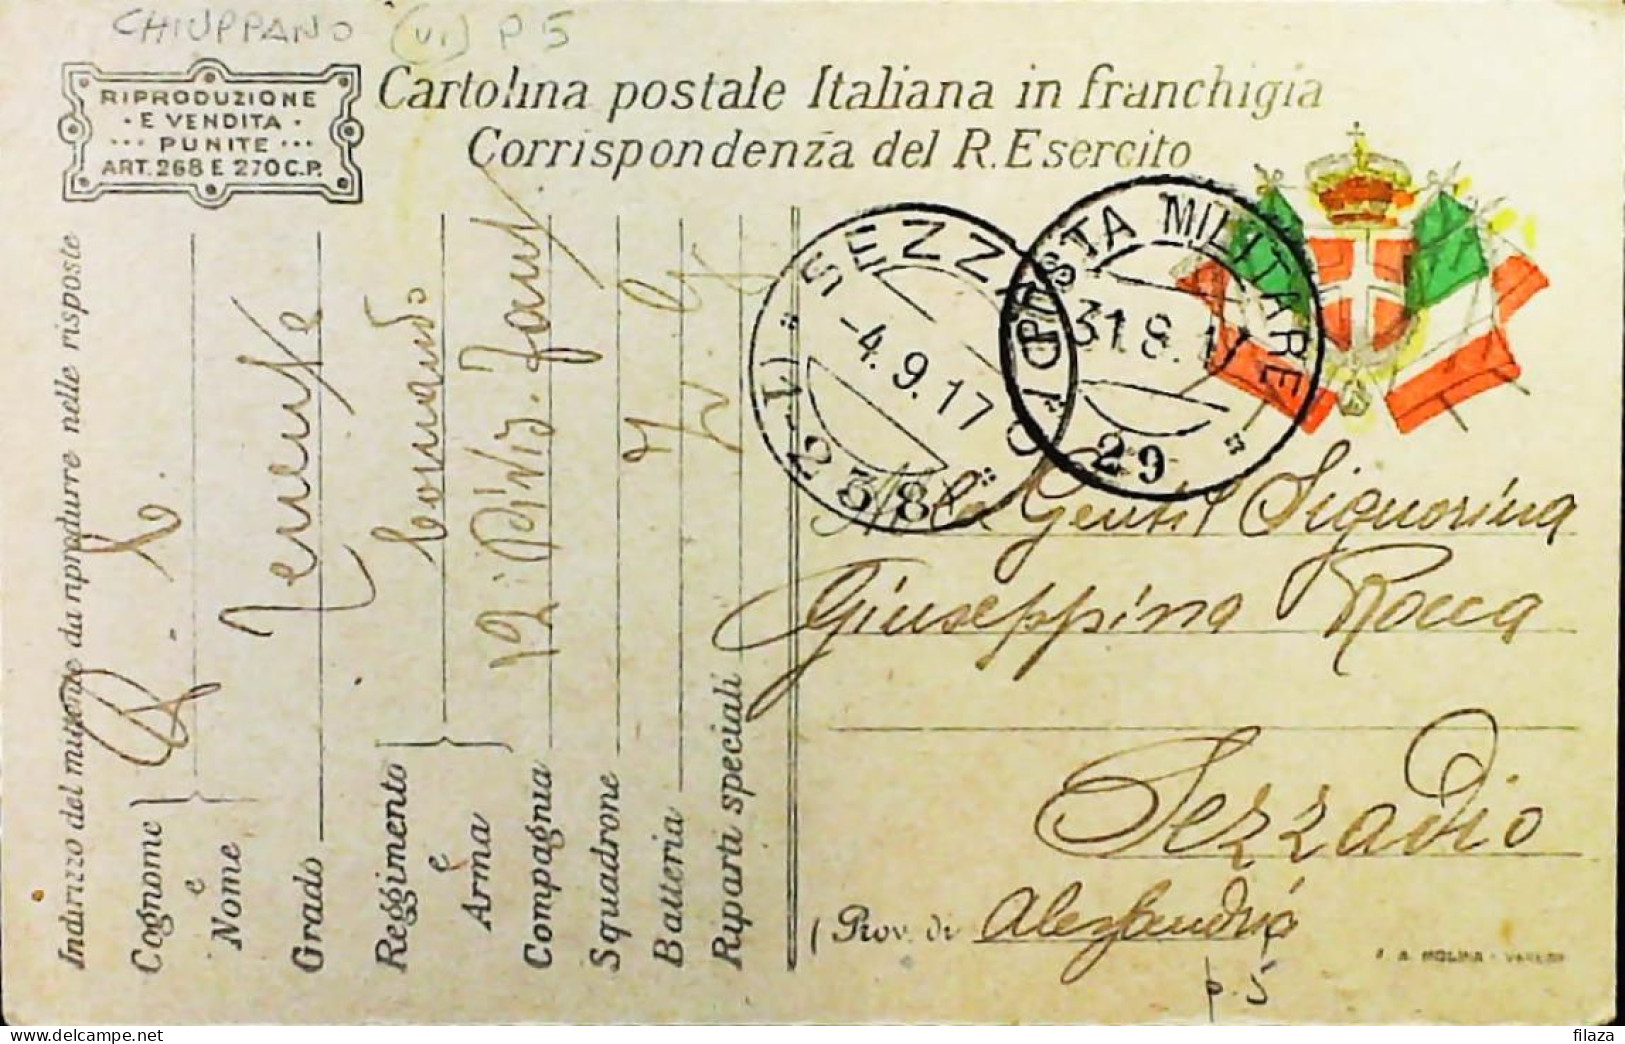 CHIUPPANO (VI) P 5
RIPRODUZIONE
· E VENDITA ·
··· PUNITE ···
ART. 268 E 270 C.P.
Cartolina postale Italiana in franchigia
Corrispondenza del R. Esercito
SEZZADIO
-4.9.17
(1-238)
POSTA MILITARE
31.8.17
29
Alla Gentil Signorina
Giuseppina Rocca
Sezzadio
(Prov. di Alessandria
P.S
J. A. MOLINA - VARESE
Indirizzo del mittente da riprodurre nelle risposte
Cognome
e
Nome
Grado Tenente
Reggimento Comando
e
Arma
Compagnia
Squadrone
Batteria
Riparti speciali
filaza